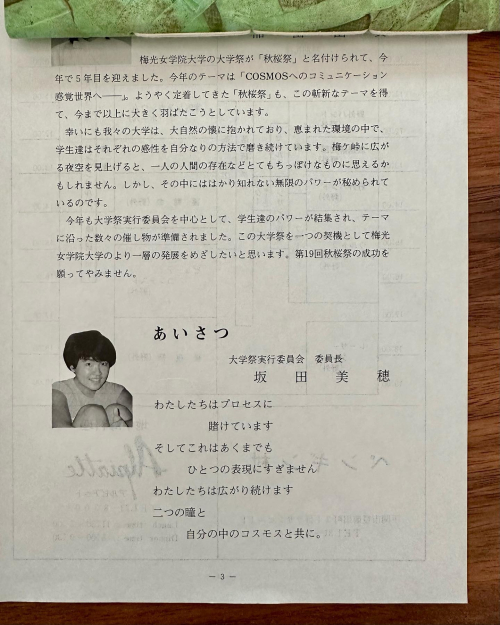 梅光女学院大学の大学祭が「秋桜祭」と名付けられて、今
年で5年目を迎えました。今年のテーマは「COSMOSへのコミュニケーション
感覚世界へ――」。ようやく定着してきた「秋桜祭」も、この斬新なテーマを得
て、今まで以上に大きく羽ばたこうとしています。
幸いにも我々の大学は、大自然の懐に抱かれており、恵まれた環境の中で、
学生はそれぞれの感性を自分なりの方法で磨き続けています。梅ケ峠に広が
る夜空を見上げると、一人の人間の存在などとてもちっぽけなものに思えるか
もしれません。しかし、その中にははかり知れない無限のパワーが秘められて
いるのです。
今年も大学祭実行委員会を中心として、学生達のパワーが結集され、テーマ
に沿った数々の催し物が準備されました。この大学祭を一つの契機として梅光
女学院大学のより一層の発展をめざしたいと思います。第19回秋桜祭の成功を
願ってやみません。
あいさつ
大学祭実行委員会 委員長
坂田美穂
わたしたちはプロセスに
賭けています
そしてこれはあくまでも
ひとつの表現にすぎません
わたしたちは広がり続けます
二つの瞳と
自分の中のコスモスと共に。
― 3 ―